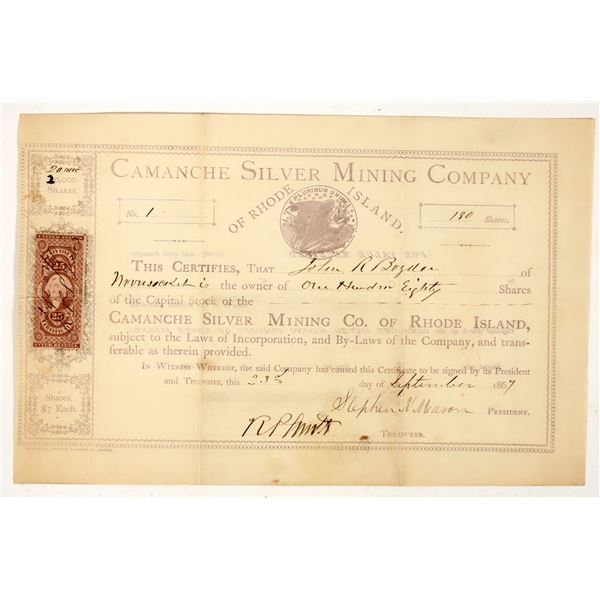 20,000
2 0,000
SHARES.
CAMANCHE SILVER MINING COMPANY
OF RHODE ISLAND.
E PLURIBUS UNUM
No. 1
180 Shares.
THIS CERTIFIES, THAT John R Boyden of
Woonsocket is the owner of One Hundred Eighty Shares
of the Capital Stock of the
CAMANCHE SILVER MINING CO. OF RHODE ISLAND,
subject to the Laws of Incorporation, and By-Laws of the Company, and trans-
ferable as therein provided.
IN WITNESS WHEREOF, the said Company has caused this Certificate to be signed by its President
and Treasurer, this 23rd day of September 1867
Stephen N. Mason PRESIDENT.
R P Smith
TREASURER.
25 25
INTER. REVENUE
Shares,
$7 Each.